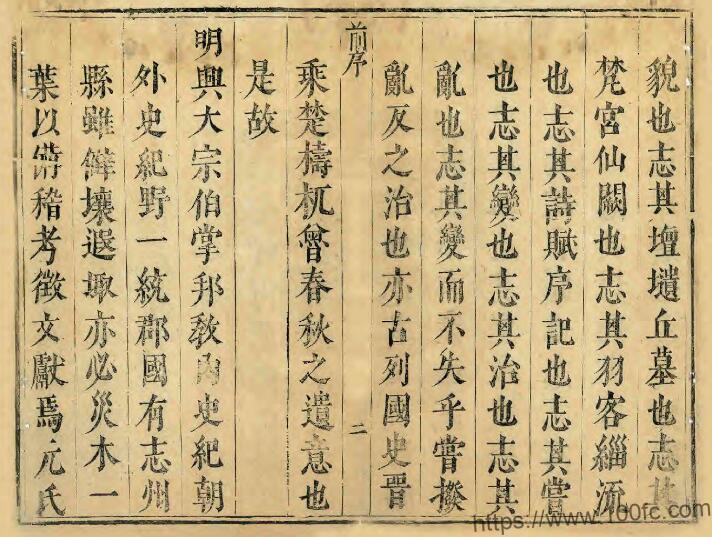 貌也志其壇壝丘墓也志其
梵宮仙闕也志其羽客緇流
也志其詩賦序記也志其嘗
也志其變也志其治也志其
亂也志其變而不失乎嘗撥
亂反之治也亦古列國史晋
前序
二
乘楚檮杌曾春秋之遺意也
是故
明興大宗伯掌邦敎内史紀朝
外史紀野一統郡國有志州
縣雖僻壤遐陬亦必災木一
葉以備稽考徵文獻焉元氏
https://www.100fc.com